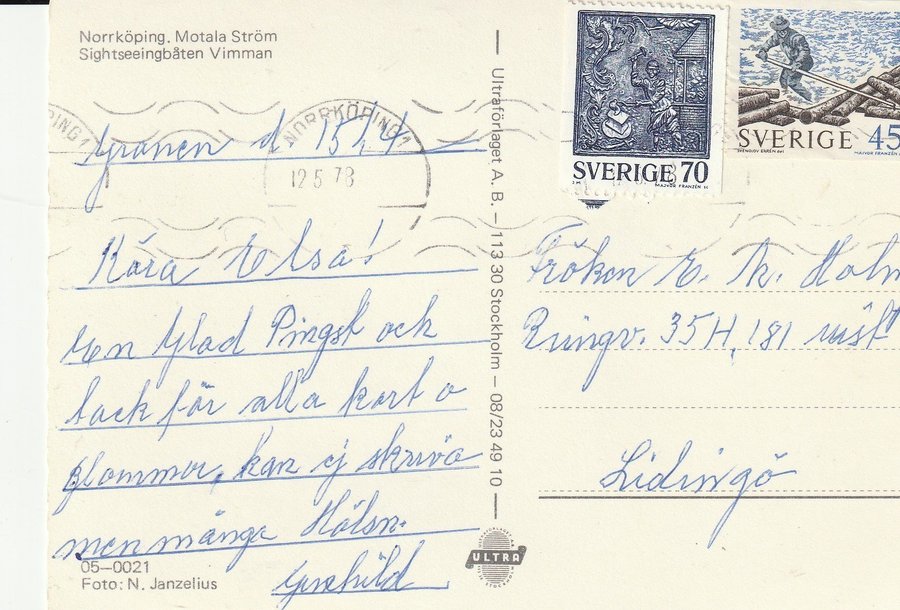 Norrköping, Motala Ström
Sightseeingbåten Vimman
NORRKÖPING 1
12 5 78
PING 1
Kära Elsa!
En Glad Pingst och
tack för alla kort o
blommor, kan ej skriva
men många Hälsn.
05–0021
Foto: N. Janzelius
Ultraförlaget A. B. – 113 30 Stockholm – 08/23 49 10
ULTRA
SVERIGE 70
MAJVOR FRANZÉN
SVERIGE 45
MAJVOR FRANZÉN
Fröken E. M. Holm
Ringv. 35H, 181
Lidingö